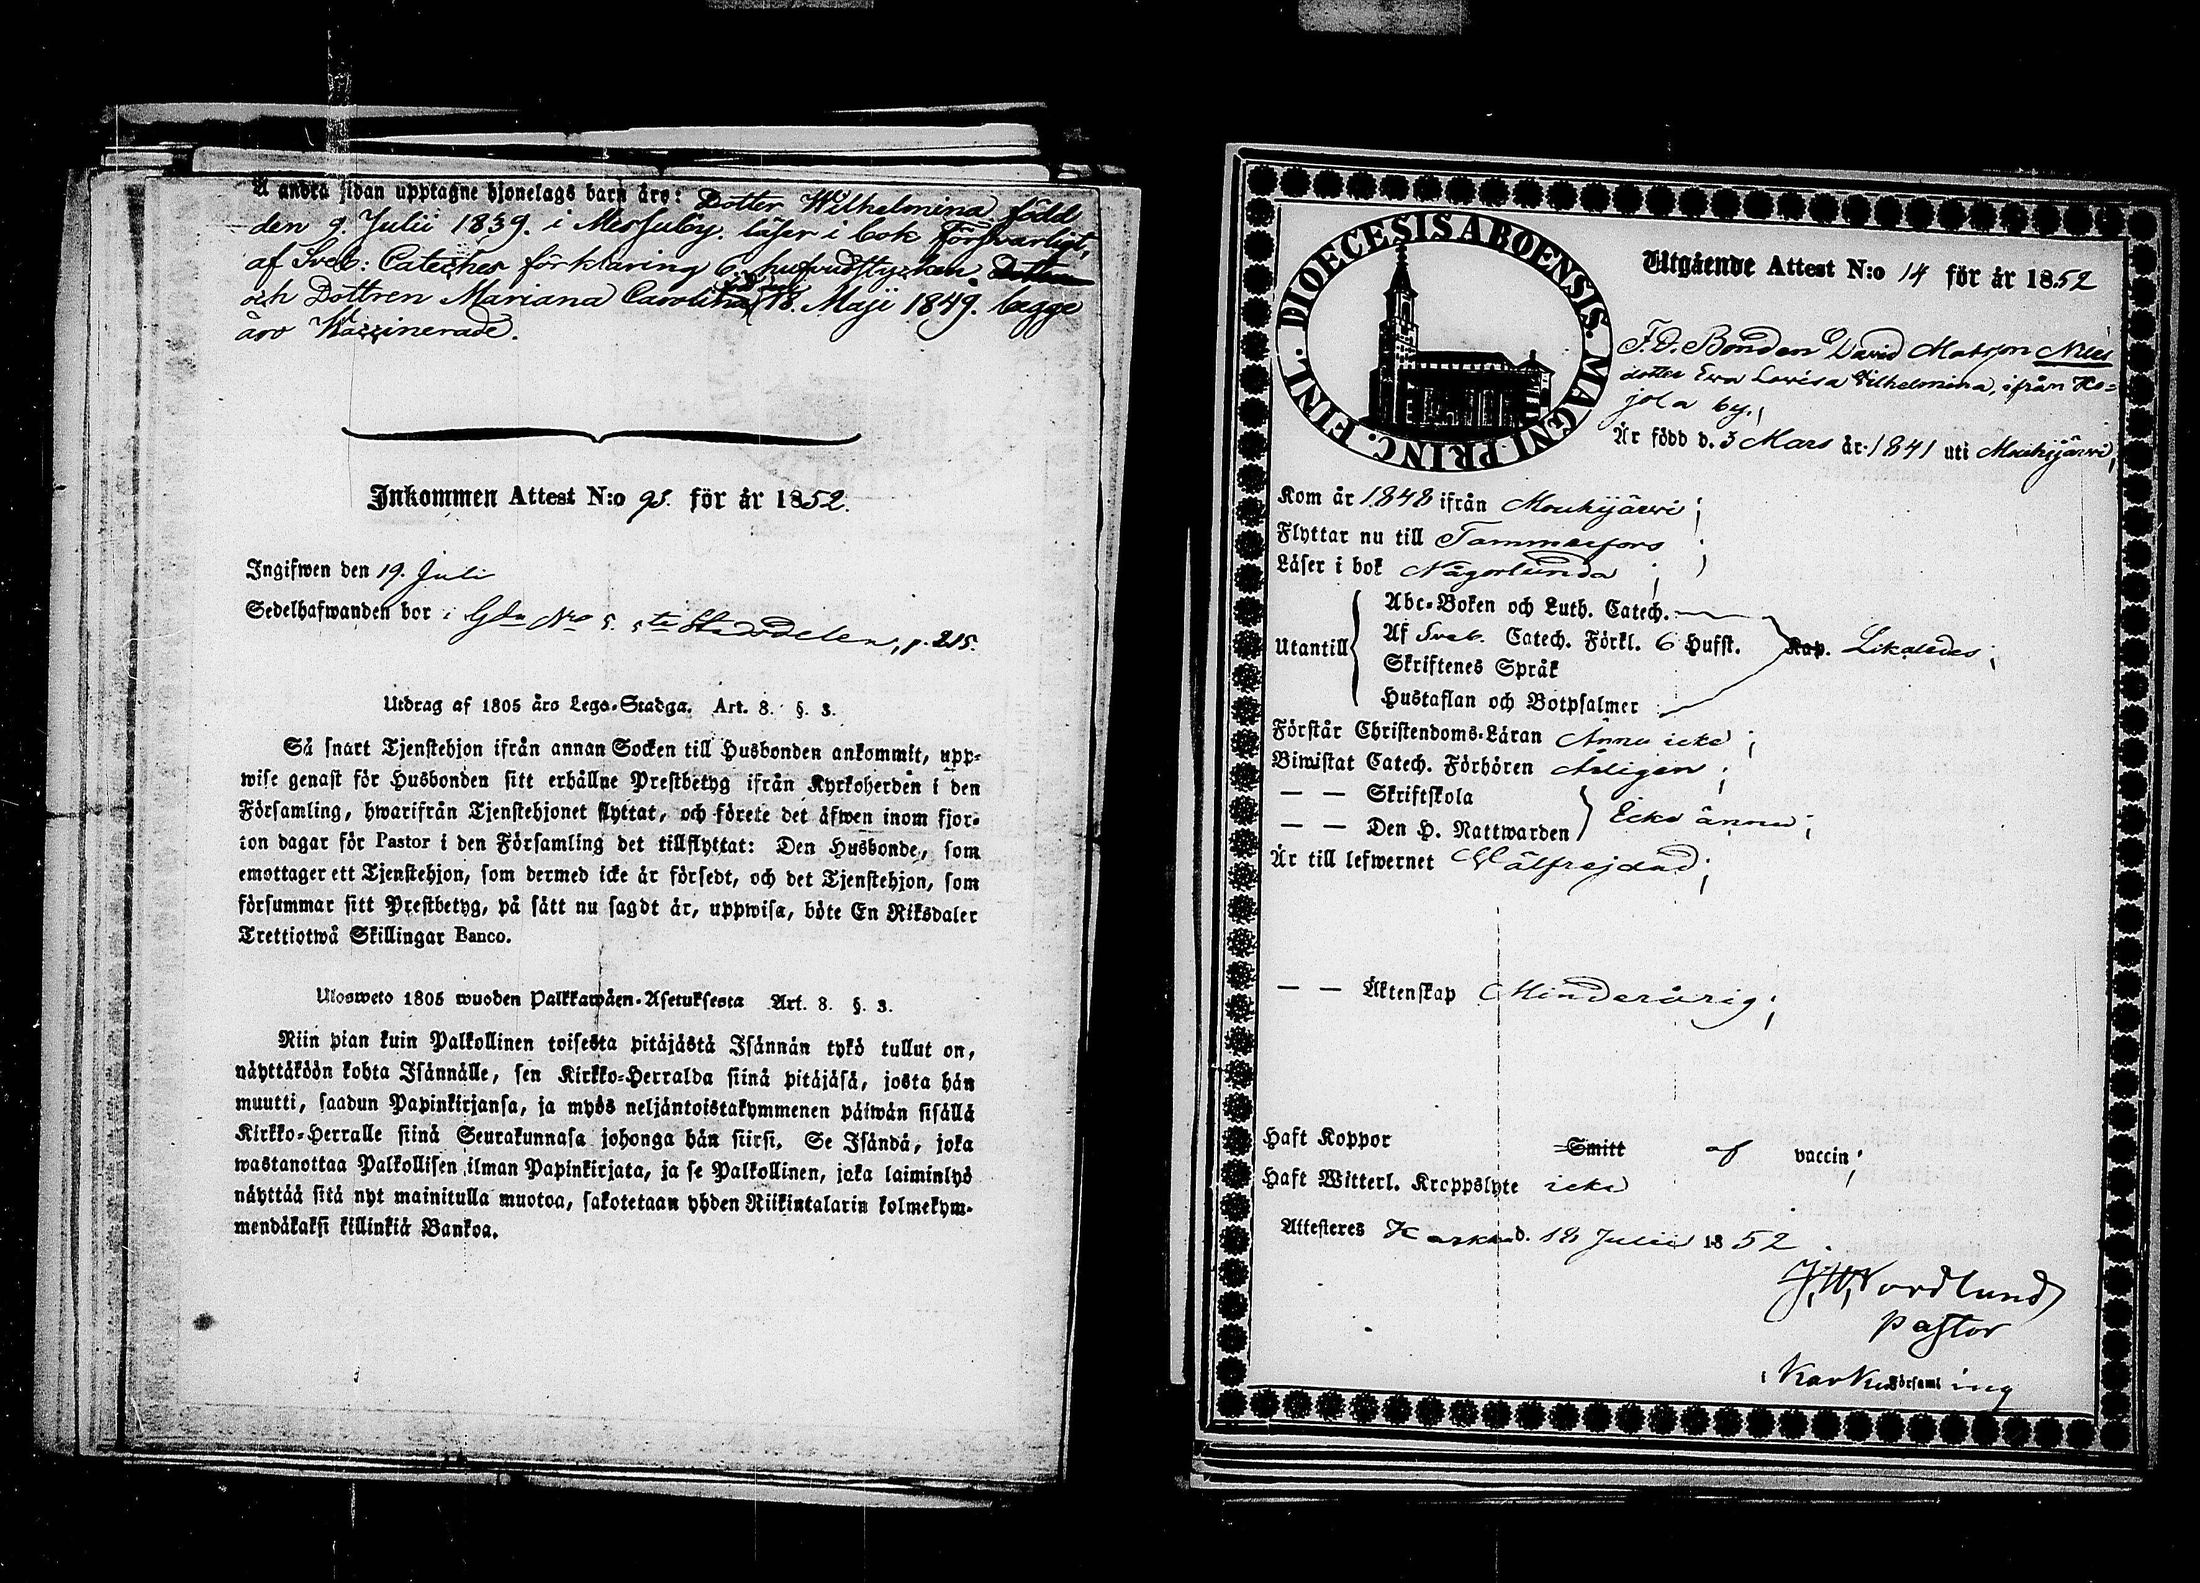 Å andra sidan upptagne hjonelags barn äro: Dotter Wilhelmina född
den 9. Julii 1839. i Messuby. läser i bok försvarligt,
af Sveb: Cateches förklaring 6. hufvudstycken. Dottren
och Dottren Mariana Carolina, född den 18. Maji 1849. begge
äro Waccinerade.
Inkommen Attest N:o 98. för år 1852.
Ingifwen den 19. Juli
Sedelhafwanden bor i Gdn No 5. 5te Stadsdelen, p. 215.
Utdrag af 1805 års Lego-Stadga. Art. 8. §. 3.
Så snart Tjenstehjon ifrån annan Socken till Husbonden ankommit, upp-
wise genast för Husbonden sitt erhållne Prestbetyg ifrån Kyrkoherden i den
Församling, hwarifrån Tjenstehjonet flyttat, och förete det äfwen inom fjor-
ton dagar för Pastor i den Församling det tillflyttat: Den Husbonde, som
emottager ett Tjenstehjon, som dermed icke är försedt, och det Tjenstehjon, som
försummar sitt Prestbetyg, på sätt nu sagdt är, uppwisa, böte En Riksdaler
Trettiotwå Skillingar Banco.
Ulosweto 1805 wuoden Palkkawäen-Asetuksesta Art. 8. §. 3.
Niin pian kuin Palkollinen toisesta pitäjästä Isännän tykö tullut on,
näyttäköön kohta Isännälle, sen Kirkko-Herralda siinä pitäjäsä, josta hän
muutti, saadun Papinkirjansa, ja myös neljäntoistakymmenen päiwän sisällä
Kirkko-Herralle siinä Seurakunnasa johonga hän siirsi. Se Isändä, joka
wastanottaa Palkollisen ilman Papinkirjata, ja se Palkollinen, joka laiminlyö
näyttää sitä nyt mainitulla muotoa, sakotetaan yhden Riikintalarin kolmekym-
mendäkaksi killinkiä Bankoa.
DIOECESIS ABOENSIS. MAGNI PRINC. FINL.
Utgående Attest N:o 14 för år 1852
F. D. Bonden David Matsson Nies
dotter Eva Lovisa Vilhelmina, ifrån Ko-
jola by,
Är född d. 3 Mars år 1841 uti Mouhijärvi,
Kom år 1848 ifrån Mouhijärvi;
Flyttar nu till Tammerfors;
Läser i bok Någorlunda;
Utantill Abc-Boken och Luth. Catech.
Af Sveb. Catech. Förkl. 6 Hufst. Kap. Likaledes;
Skriftenes Språk
Hustaflan och Botpsalmer
Förstår Christendoms-Läran Ännu icke;
Biwistat Catech. Förhören Årligen;
— — Skriftskola
— — Den H. Nattwarden Icke ännu;
Är till lefwernet Wälfrejdad;
— — Äktenskap Minderårig;
Haft Koppor Smitt af vaccin;
Haft Witterl. Kroppslyte icke
Attesteres Karkku d. 18 Julii 1852
J. W. Nordlund
Pastor
i Karku Församling